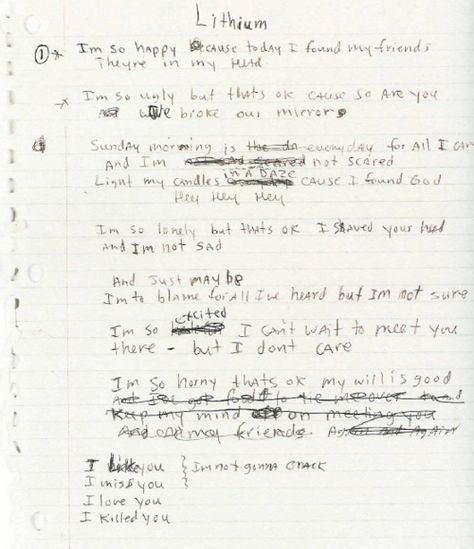 Lithium
① * Im so happy cause today I found my friends
Theyre in my Head
→ Im so ugly but thats ok cause so are you
we broke our mirrors
Sunday morning is everyday for All I care
And Im not scared
Light my candles IN A DAZE cause I found God
Hey Hey Hey
Im so lonely but thats ok I shaved your head
And Im not sad
And Just maybe
Im to blame for All Ive heard but Im not sure
Im so excited I cant wait to meet you
there - but I dont care
Im so horny thats ok my will is good
And Ive got
Keep my mind on meeting you
And friends Again
I like you } Im not gonna crack
I miss you }
I love you
I killed you